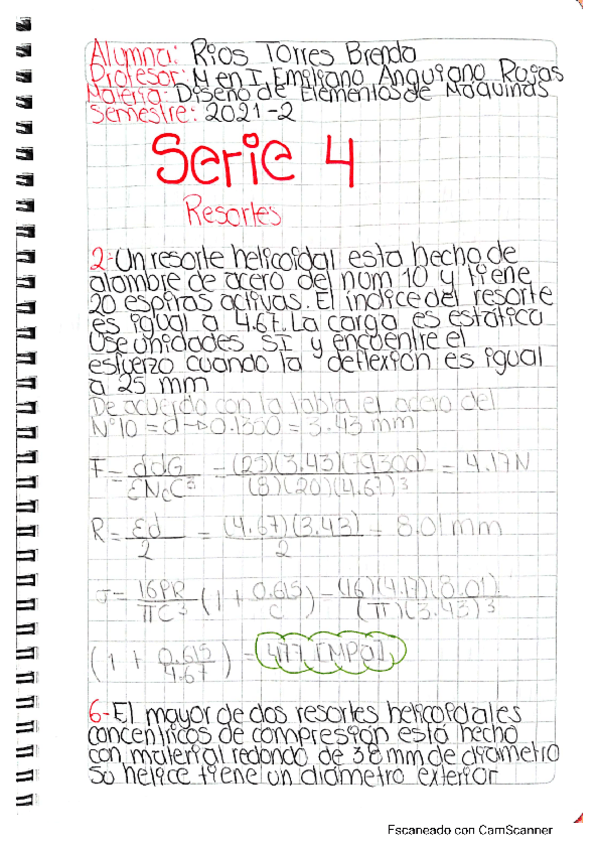 Alumna: Rios Torres Brenda
Profesor: M en I. Emiliano Anguiano Rojas
Materia: Diseño de Elementos de Máquinas
Semestre: 2021-2
Serie 4
Resortes
2.-Un resorte helicoidal esta hecho de
alambre de acero del num 10 y tiene
20 espiras activas. El indice del resorte
es igual a 4.67. La carga es estática
Use unidades SI y encuentre el
esfuerzo cuando la deflexión es igual
a 25 mm
De acuerdo con la tabla el acero del
N°10 = d → 0.1300 = 3.43 mm
F = ddG / ENcC³ = (25)(3.43)(79300) / (8)(20)(4.67)³ = 4.17N
R = Ed / 2 = (4.67)(3.43) / 2 = 8.01 mm
J = 16PR / πC³ (1 + 0.615 / C) = (16)(4.17)(8.01) / (π)(3.43)³
(1 + 0.615 / 4.67) = 477 [MPa]
6-El mayor de dos resortes helicoidales
concentricos de compresión está hecho
con material redondo de 38 mm de diametro
So helice tiene un diametro exterior
Escaneado con CamScanner